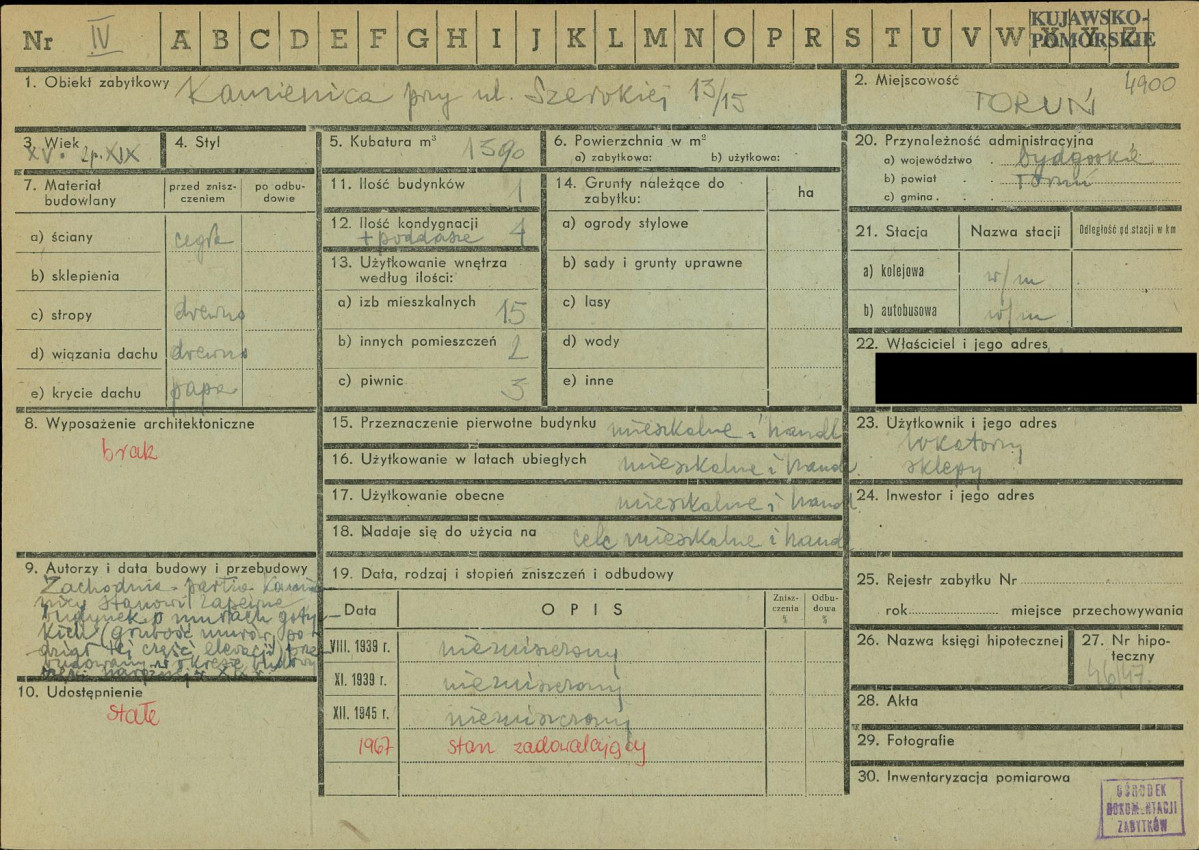 Nr IV A B C D E F G H I J K L M N O P R S T U V W X Y Z
KUJAWSKO-
POMORSKIE
1. Obiekt zabytkowy Kamienica przy ul. Szerokiej 13/15
2. Miejscowość 4900
TORUŃ
3. Wiek
XV. 2p. XIX
4. Styl
5. Kubatura m³ 1390
6. Powierzchnia w m²
a) zabytkowa: b) użytkowa:
7. Materiał budowlany
przed znisz-
czeniem
po odbu-
dowie
a) ściany cegła
b) sklepienia
c) stropy drewno
d) wiązania dachu drewno
e) krycie dachu papa
8. Wyposażenie architektoniczne
brak
9. Autorzy i data budowy i przebudowy
Zachodnia partia Kamie
nicy stanowi zapewne
budynek o murach goty-
kich (grubość murów, po
tej części elewacji) prze
budowany w okresie budowy
XIX w.
10. Udostępnienie
stałe
11. Ilość budynków 1
12. Ilość kondygnacji
+ poddasze 4
13. Użytkowanie wnętrza
według ilości:
a) izb mieszkalnych 15
b) innych pomieszczeń 2
c) piwnic 3
14. Grunty należące do
zabytku:
ha
a) ogrody stylowe
b) sady i grunty uprawne
c) lasy
d) wody
e) inne
15. Przeznaczenie pierwotne budynku mieszkalne i handl
16. Użytkowanie w latach ubiegłych mieszkalne i handl
17. Użytkowanie obecne mieszkalne i handl
18. Nadaje się do użycia na cele mieszkalne i handl
19. Data, rodzaj i stopień zniszczeń i odbudowy
Data OPIS
Znisz-
czenia
%
Odbu-
dowa
%
VIII. 1939 r. niezniszczony
XI. 1939 r. niezniszczony
XII. 1945 r. niezniszczony
1967 stan zadowalający
20. Przynależność administracyjna
a) województwo bydgoskie
b) powiat Toruń
c) gmina
21. Stacja Nazwa stacji Odległość od stacji w km
a) kolejowa w/m
b) autobusowa w/m
22. Właściciel i jego adres
23. Użytkownik i jego adres
lokatorzy
sklepy
24. Inwestor i jego adres
25. Rejestr zabytku Nr
rok miejsce przechowywania
26. Nazwa księgi hipotecznej
27. Nr hipo-
teczny
46/47.
28. Akta
29. Fotografie
30. Inwentaryzacja pomiarowa
OŚRODEK
DOKUMENTACJI
ZABYTKÓW